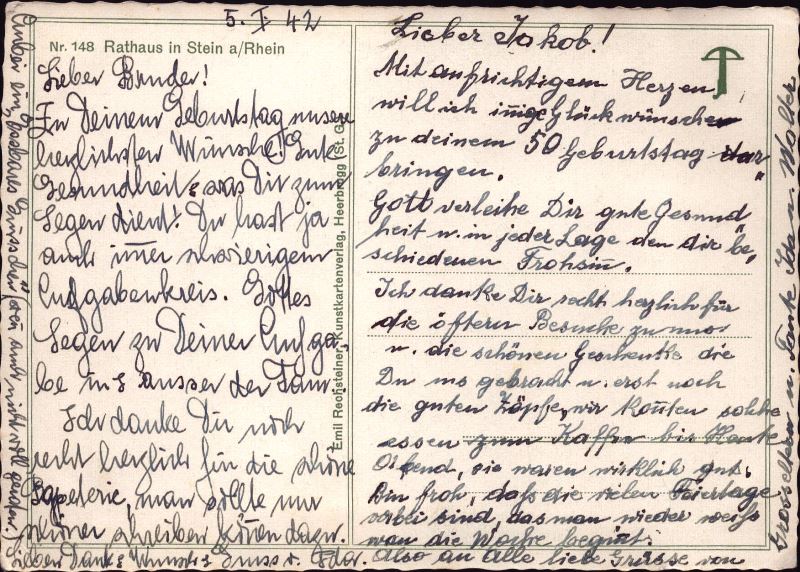 5. I 42
Nr. 148 Rathaus in Stein a/Rhein
Lieber Bruder!
Zu Deinem Geburtstag unsere
herzlichsten Wünsche! Gute
Gesundheit & was Dir zum
Segen dient! Du hast ja
auch immer
Aufgabenkreis. Gottes
Segen zu Deiner Aufga-
be in & ausser der Fam.
Ich danke Dir noch
recht herzlich für die schöne
Papeterie, man sollte nur
schöner schreiben können dazu.
Lieben Dank & Wunsch & Gruss v.
Emil Rechsteiner, Kunstkartenverlag, Heerbrugg (St. G.)
Lieber Jakob!
Mit aufrichtigem Herzen
will ich innige Glückwünschen
zu deinem 50 Geburtstag dar
bringen.
Gott verleihe Dir gute Gesund
heit u. in jeder Lage den dir be„
schiedenen Frohsinn.
Ich danke Dir recht herzlich für
die öftern Besuche zu uns
u. die schönen Geschenke die
Du uns gebracht u. erst noch
die guten Zöpfe, wir konnten solche
essen zum Kaffee bis Heute
Abend, sie waren wirklich gut.
Bin froh, daß die vielen Feiertage
vorbei sind, das man wieder weiß
wan die Woche beginnt.
Also an Alle liebe Grüsse von
Grosseltern u. Tante Ida u. Walter